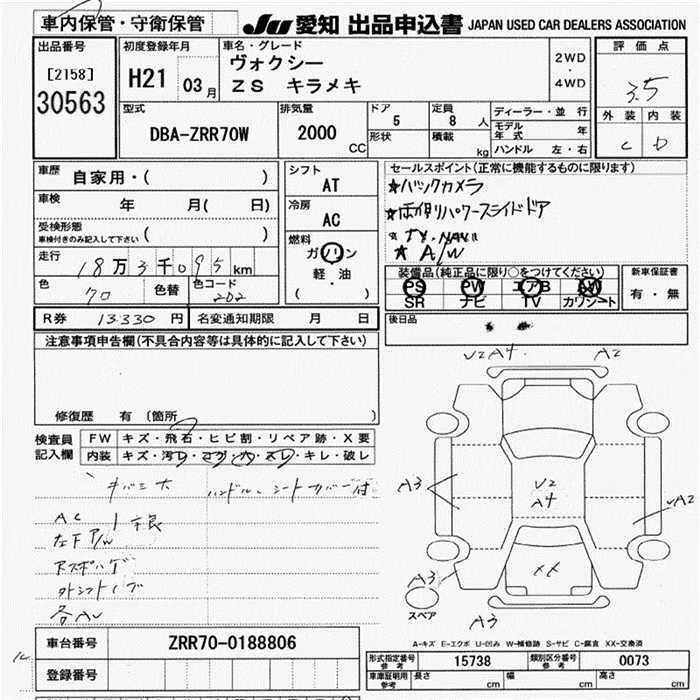 車内保管・守衛保管
JU 愛知 出品申込書 JAPAN USED CAR DEALERS ASSOCIATION
出品番号
[2158]
30563
初度登録年月
H21 03月
車名・グレード
ヴォクシー
ZS キラメキ
2WD
・
4WD
評価点
3.5
外装 内装
C D
型式
DBA-ZRR70W
排気量
2000
CC
ドア
5
形状
定員
8 人
積載
kg
ディーラー・並行
モデル年式 年
ハンドル 左・右
車歴
自家用・( )
車検
年 月( 日)
受検形態
車検付きのみ記入して下さい ( )
走行
18万3千095km
色
70
色替
色コード
202
シフト
AT
冷房
AC
燃料
ガソリン
軽・油
( )
セールスポイント(正常に機能するものに限ります)
★バックカメラ
★両側パワースライドドア
★TV・NAVI
★A/W
装備品(純正品に限り○をつけてください)
PS PW エアB AW
SR ナビ TV カワシート
新車保証書
有・無
後日品
R券 13330円 名変通知期限 月 日
注意事項申告欄(不具合内容等は具体的に記入して下さい)
修復歴 有 (箇所 )
検査員記入欄
FW キズ・飛石・ヒビ割・リペア跡・X要
内装 キズ・汚レ・コゲ・穴・スレ・キレ・破レ
ハンドル、シートカバー付
AC
左下A/W
各AW
V2 A4 A2
A3
V2
A4
A2
XX
A3
スペア
A3
A-キズ E-エクボ U-凹み W-補修跡 S-サビ C-腐食 XX-交換済
車台番号 ZRR70-0188806
登録番号
形式指定番号 参考 15738 類別区分番号 参考 0073
車庫証明用 参考 長さ cm 幅 cm 高さ cm